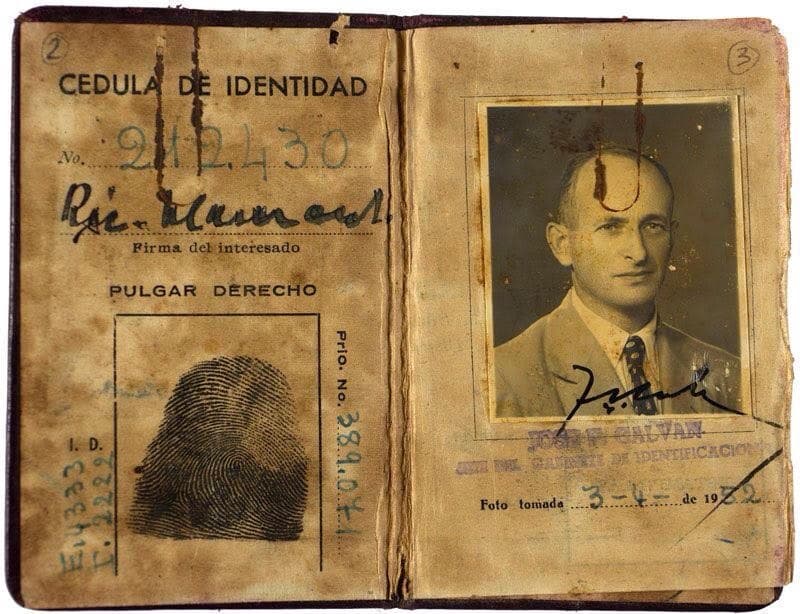 2
CEDULA DE IDENTIDAD
No. 212.430
Ric. Klement.
Firma del interesado
PULGAR DERECHO
Prio. No. 389.071
I. D.
E14333
I. 2222
3
JOSE F. GALVAN
JEFE DEL GABINETE DE IDENTIFICACION
Foto tomada 3-4- de 1952